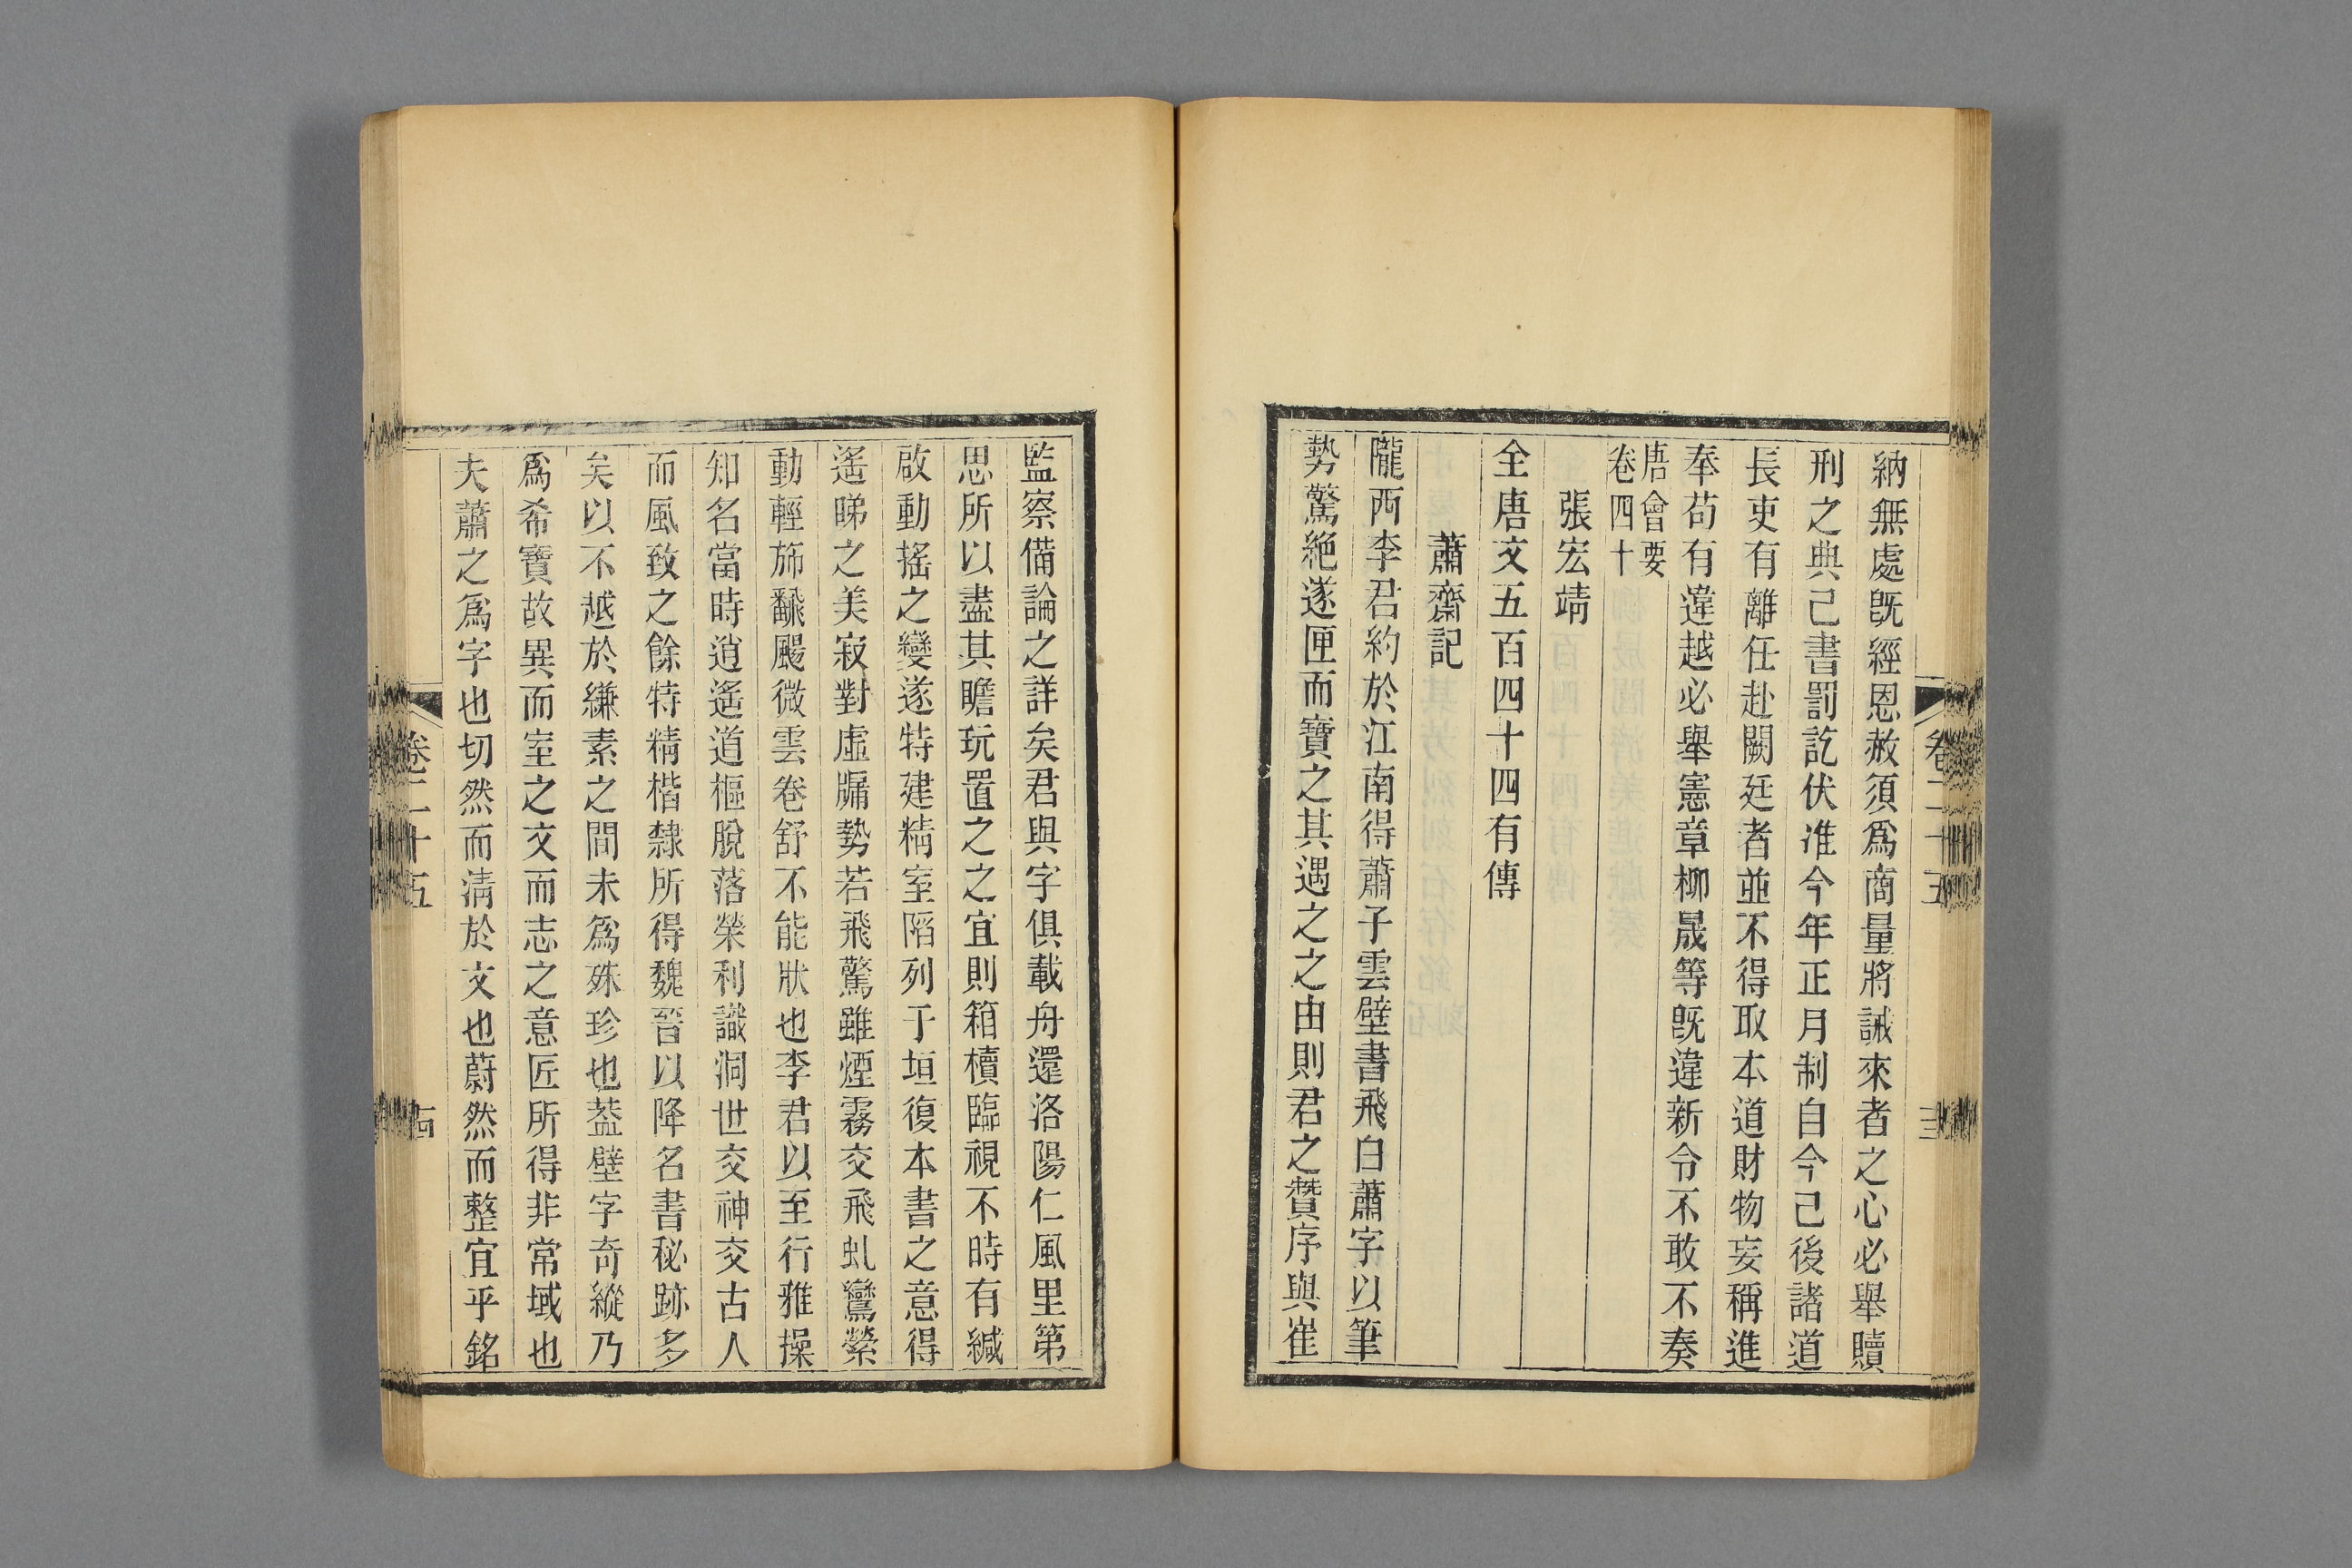 納無處旣經恩赦須爲商量將誡來者之心必舉贖
刑之典己書罰訖伏准今年正月制自今己後諸道
長吏有離任赴闕廷者並不得取本道財物妄稱進
奉苟有違越必舉憲章柳晟等旣違新令不敢不奏
唐會要
卷四十
張宏靖
全唐文五百四十四有傳
蕭齋記
隴西李君約於江南得蕭子雲壁書飛白蕭字以筆
勢驚絕遂匣而寶之其遇之之由則君之贊序與崔
監察備論之詳矣君與字俱載舟還洛陽仁風里第
思所以盡其瞻玩置之之宜則箱櫝臨視不時有緘
啟動搖之變遂特建精室陷列于垣復本書之意得
遙睇之美寂對虛牖勢若飛驚雖煙霧交飛虬鸞縈
動輕旆飜颺微雲卷舒不能狀也李君以至行雅操
知名當時逍遙道樞脫落榮利識洞世交神交古人
而風致之餘特精楷隸所得魏晉以降名書秘跡多
矣以不越於縑素之間未爲殊珍也葢壁字奇縱乃
爲希寶故異而室之文而志之意匠所得非常域也
夫蕭之爲字也切然而淸於文也蔚然而整宜乎銘
卷二十五